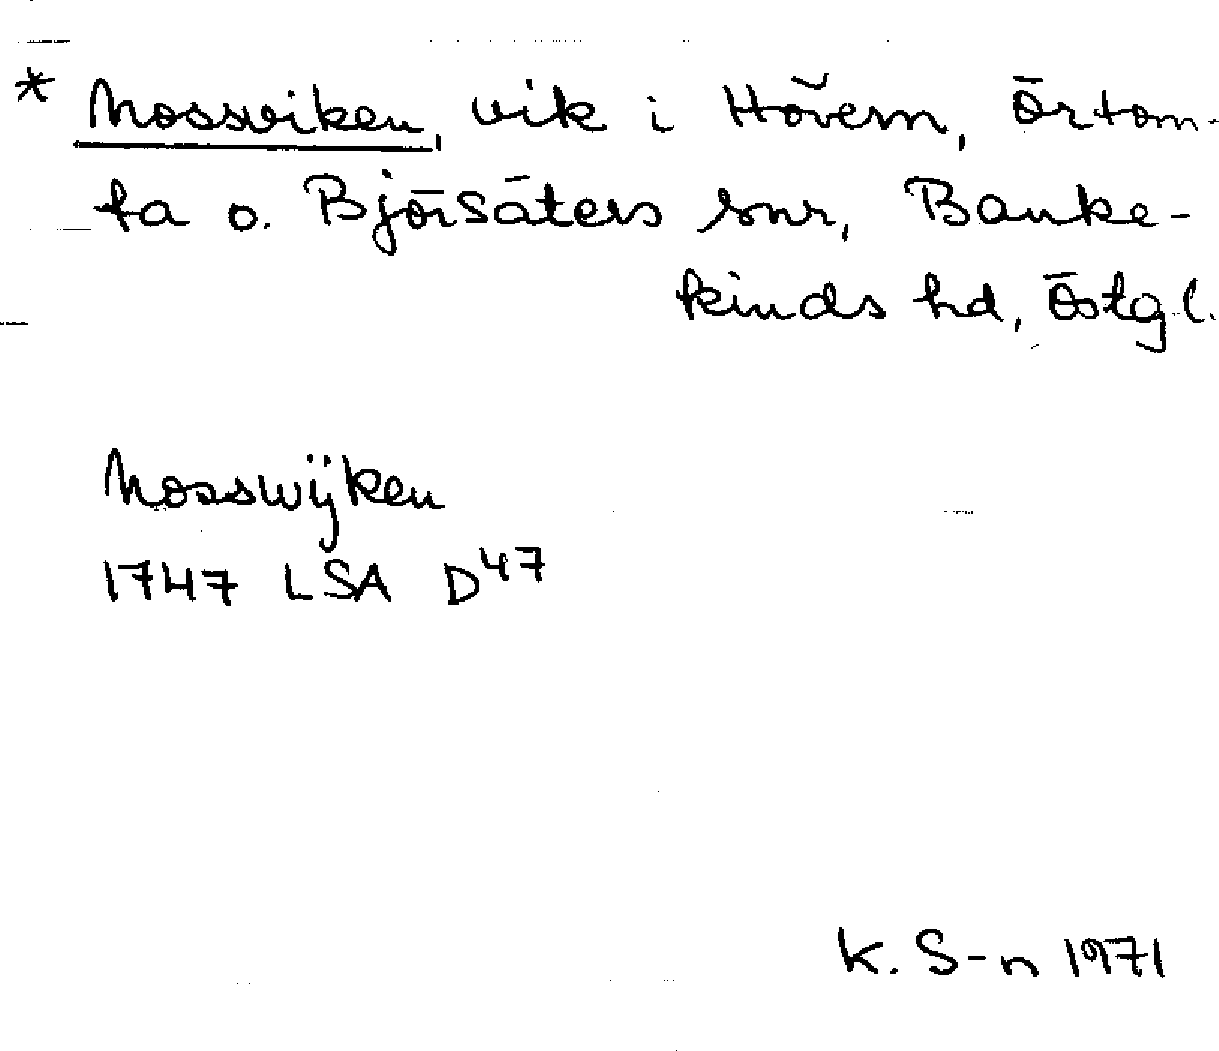 * Mossviken, vik i Hövern, Örtom-
ta o. Björsäters snr, Banke-
kinds hd, Östgl.
Mosswÿken
1747 LSA D47
K. S-n 1971